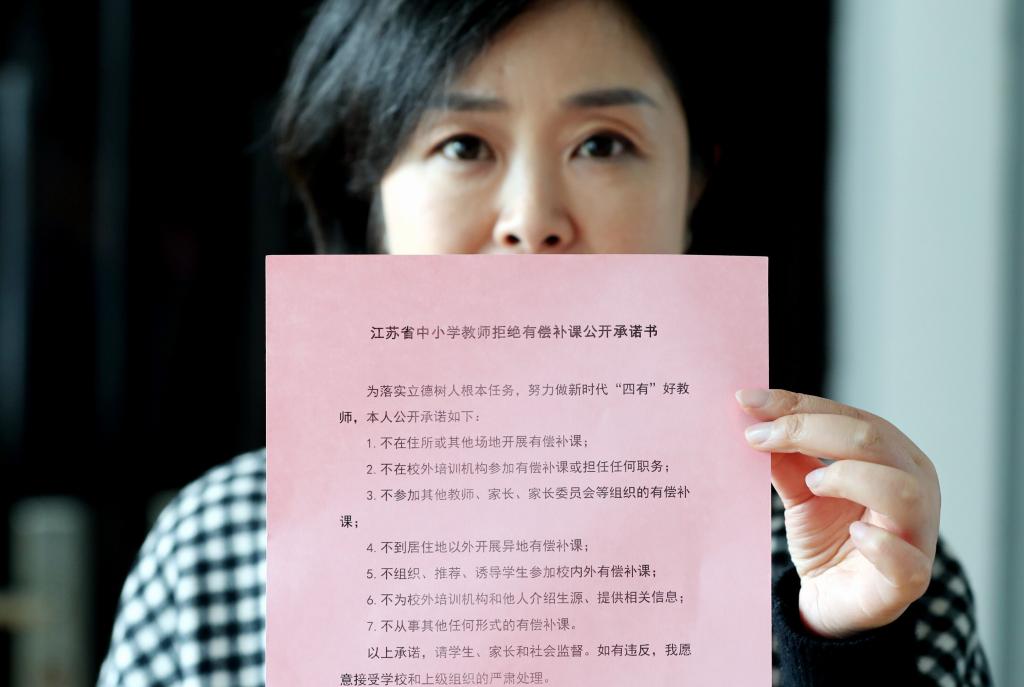 江苏省中小学教师拒绝有偿补课公开承诺书
为落实立德树人根本任务，努力做新时代“四有”好教
师，本人公开承诺如下：
1. 不在住所或其他场地开展有偿补课；
2. 不在校外培训机构参加有偿补课或担任任何职务；
3. 不参加其他教师、家长、家长委员会等组织的有偿补
课；
4. 不到居住地以外开展异地有偿补课；
5. 不组织、推荐、诱导学生参加校内外有偿补课；
6. 不为校外培训机构和他人介绍生源、提供相关信息；
7. 不从事其他任何形式的有偿补课。
以上承诺，请学生、家长和社会监督。如有违反，我愿
意接受学校和上级组织的严肃处理。